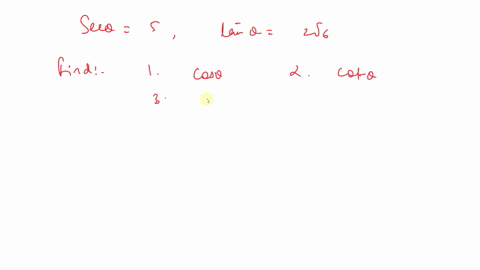 Secθ = 5 , tanθ = 2√6
find:. 1. cosθ 2. cotθ
3.